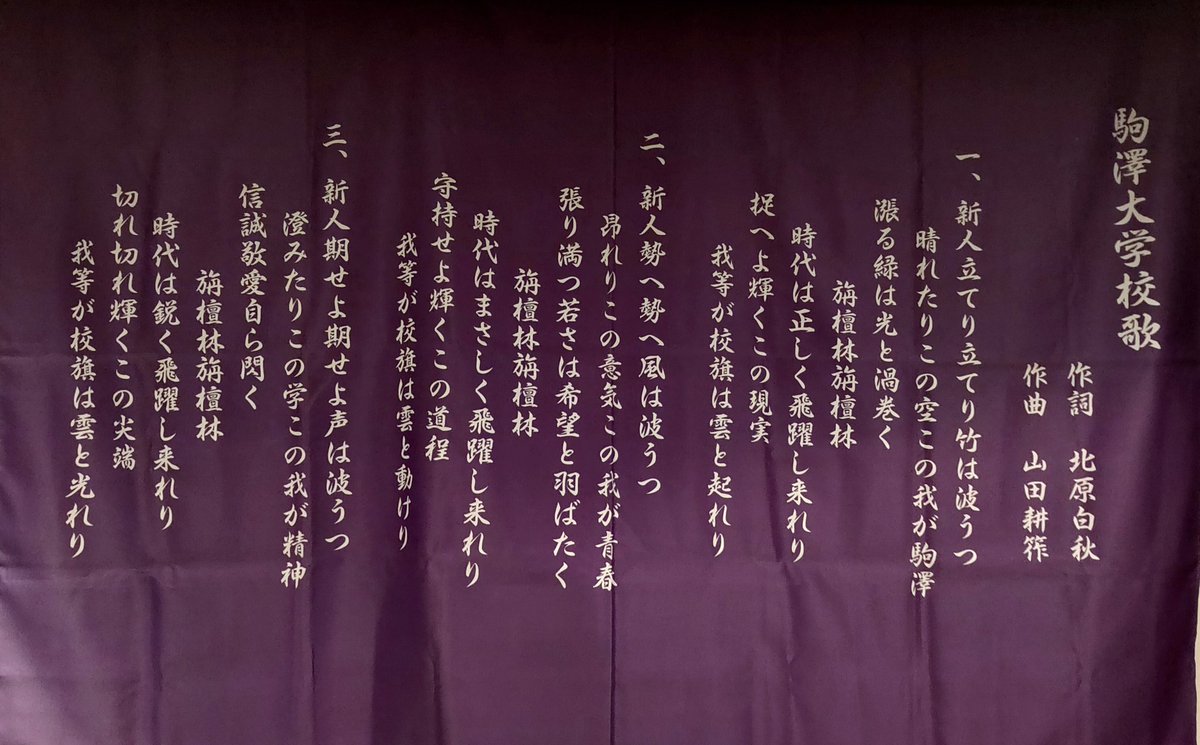 駒澤大学校歌
作詞　北原白秋
作曲　山田耕筰
一、新人立てり立てり竹は波うつ
晴れたりこの空この我が駒澤
漲る緑は光と渦巻く
旃檀林旃檀林
時代は正しく飛躍し来れり
捉へよ輝くこの現実
我等が校旗は雲と起れり
二、新人勢へ勢へ風は波うつ
昂れりこの意気この我が青春
張り満つ若さは希望と羽ばたく
旃檀林旃檀林
時代はまさしく飛躍し来れり
守持せよ輝くこの道程
我等が校旗は雲と動けり
三、新人期せよ期せよ声は波うつ
澄みたりこの学この我が精神
信誠敬愛自ら閃く
旃檀林旃檀林
時代は鋭く飛躍し来れり
切れ切れ輝くこの尖端
我等が校旗は雲と光れり